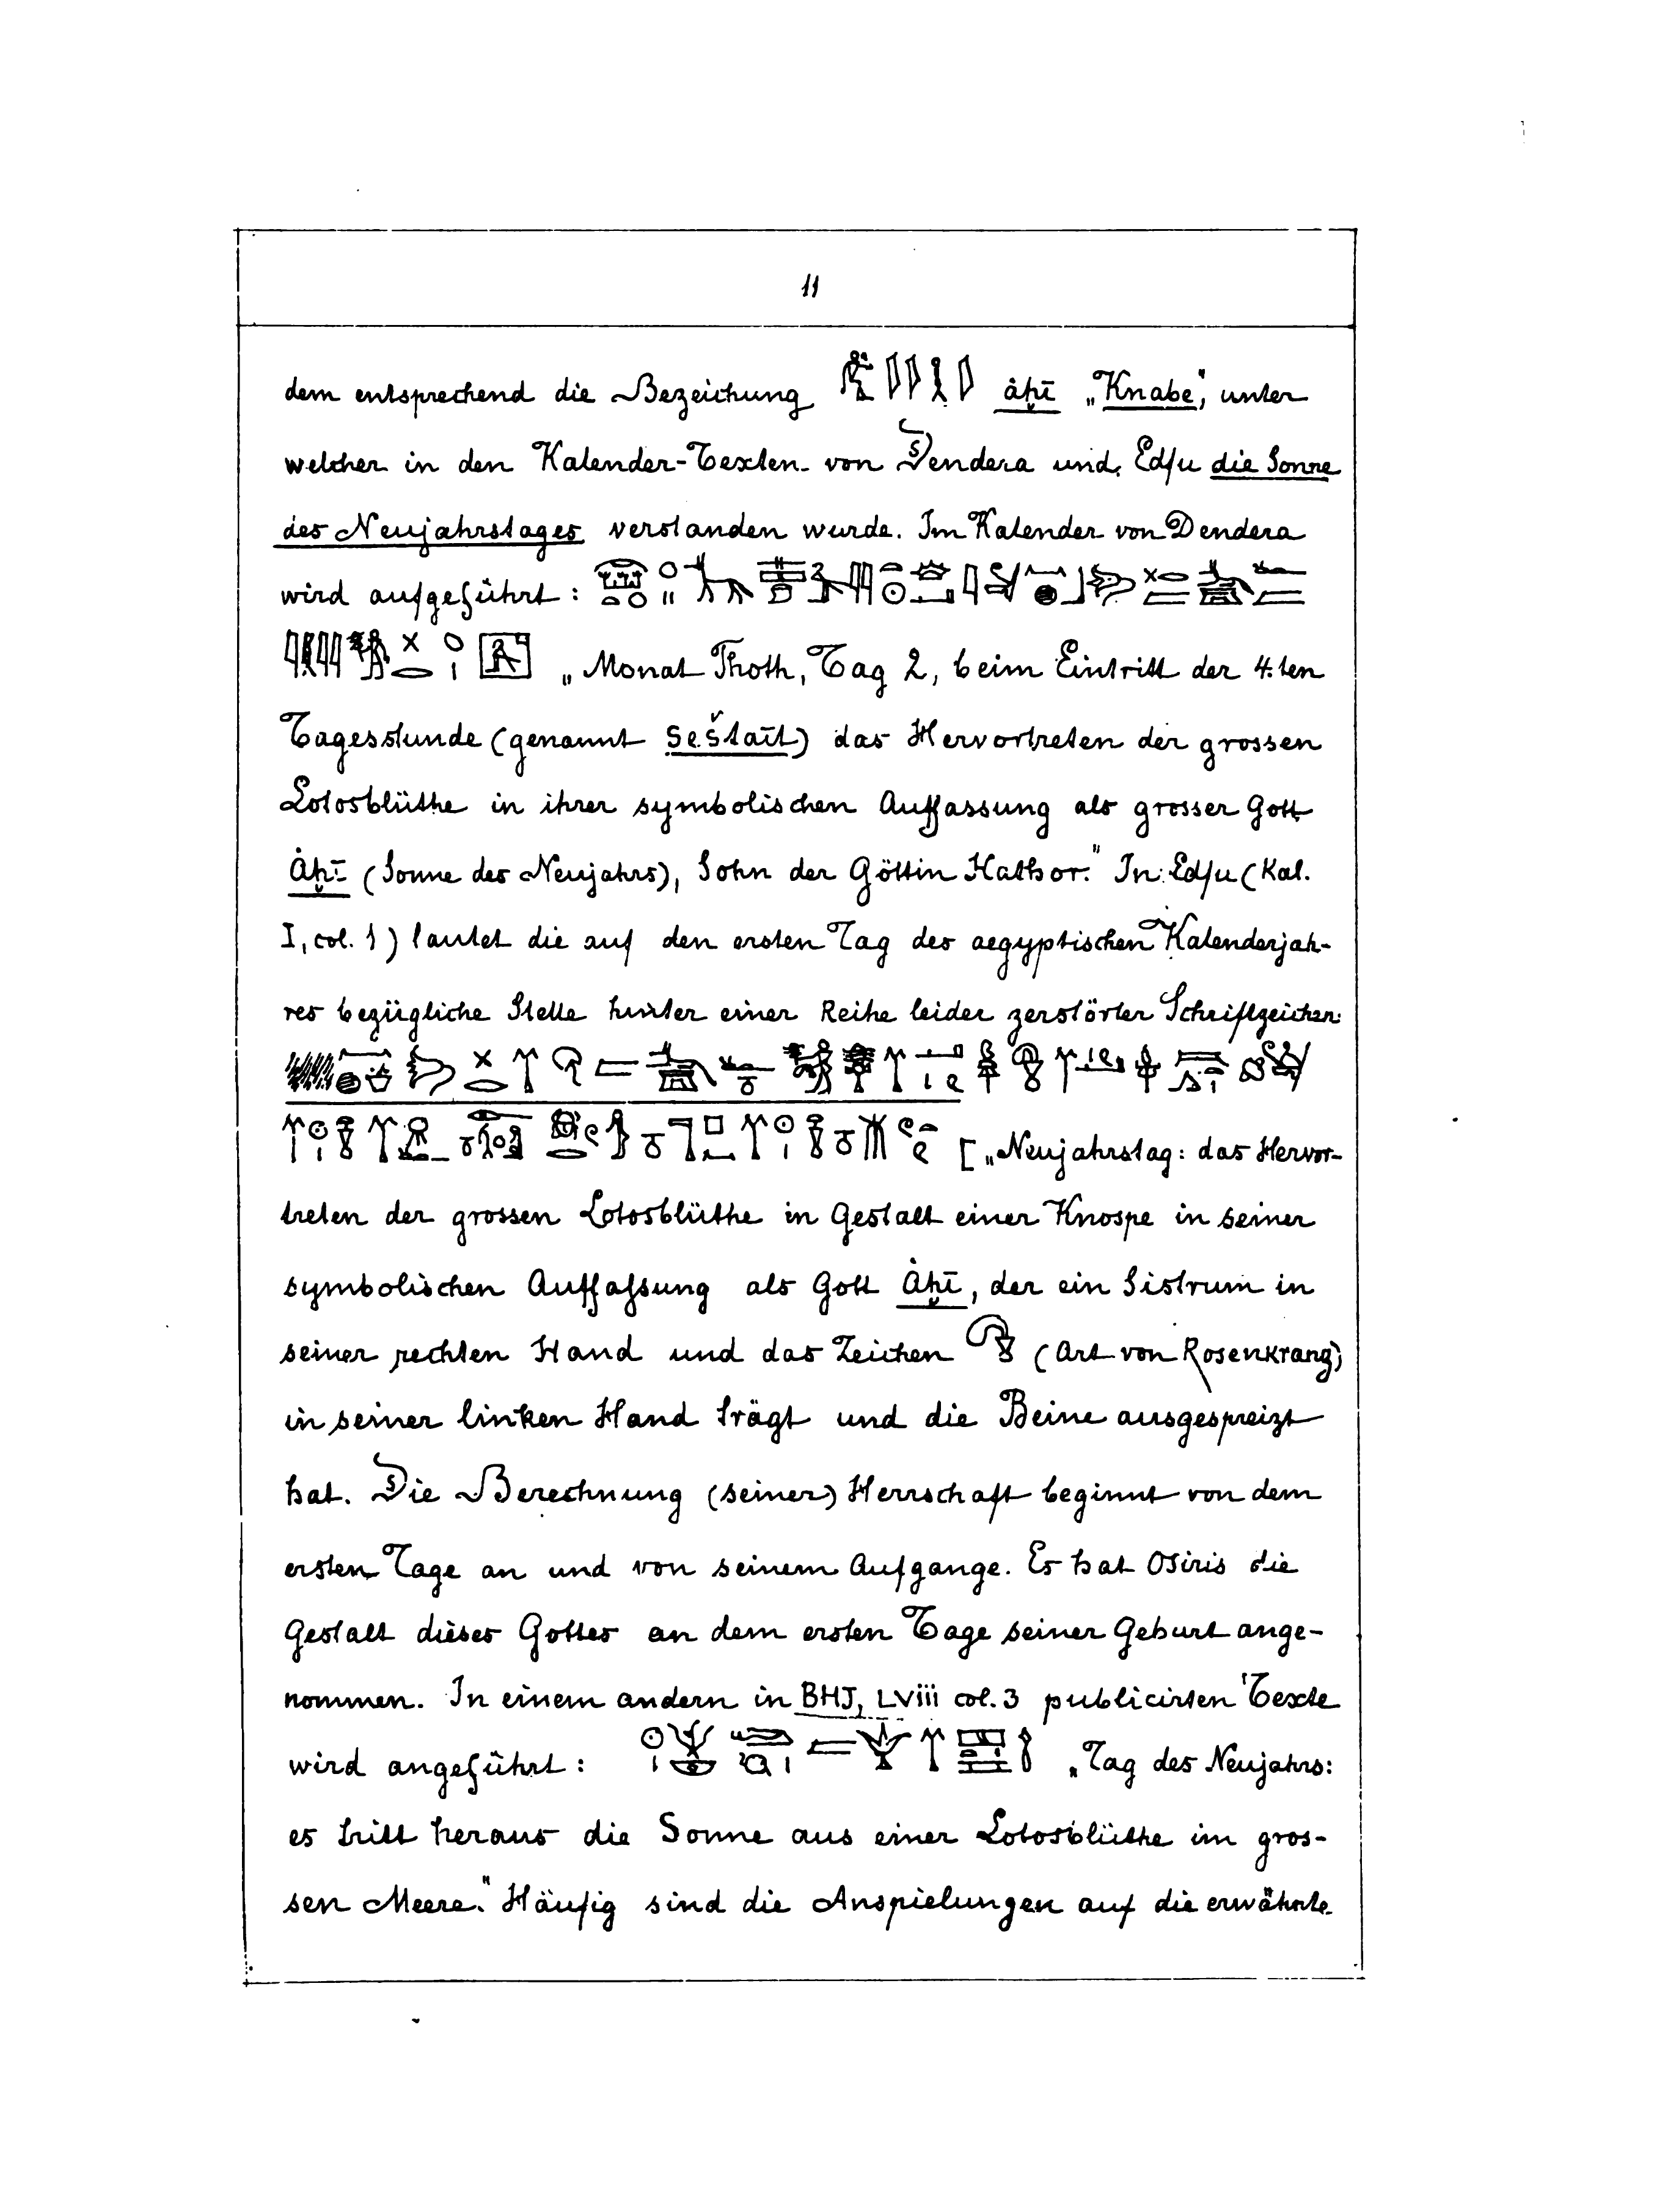 11
dem entsprechend die Bezeichung ȧḥī „Knabe“, unter
welcher in den Kalender-Texten von Dendera und Edfu die Sonne
des Neujahrstages verstanden wurde. Im Kalender von Dendera
wird aufgeführt:
„Monat Thoth, Tag 2, beim Eintritt der 4.ten
Tagesstunde (genannt seštaīt) das Hervortreten der grossen
Lotosblüthe in ihrer symbolischen Auffassung als grosser Gott
Ȧḥī (Sonne des Neujahrs), Sohn der Göttin Hathor.“ In Edfu (Kal.
I, col. 1) lautet die auf den ersten Tag des aegyptischen Kalenderjah-
res bezügliche Stelle hinter einer Reihe leider zerstörter Schriftzeichen:
[„Neujahrstag: das Hervor-
treten der grossen Lotosblüthe in Gestalt einer Knospe in seiner
symbolischen Auffaſsung als Gott Ȧḥī, der ein Sistrum in
seiner rechten Hand und das Zeichen (Art von Rosenkranz)
in seiner linken Hand trägt und die Beine ausgespreizt
hat. Die Berechnung (seiner) Herrschaft beginnt von dem
ersten Tage an und von seinem Aufgange. Es hat Osiris die
Gestalt dieses Gottes an dem ersten Tage seiner Geburt ange-
nommen. In einem andern in BHJ, LViii col. 3 publicirten Texte
wird angeführt: „Tag des Neujahrs:
es tritt heraus die Sonne aus einer Lotosblüthe im gros-
sen Meere.“ Häufig sind die Anspielungen auf die erwähnte